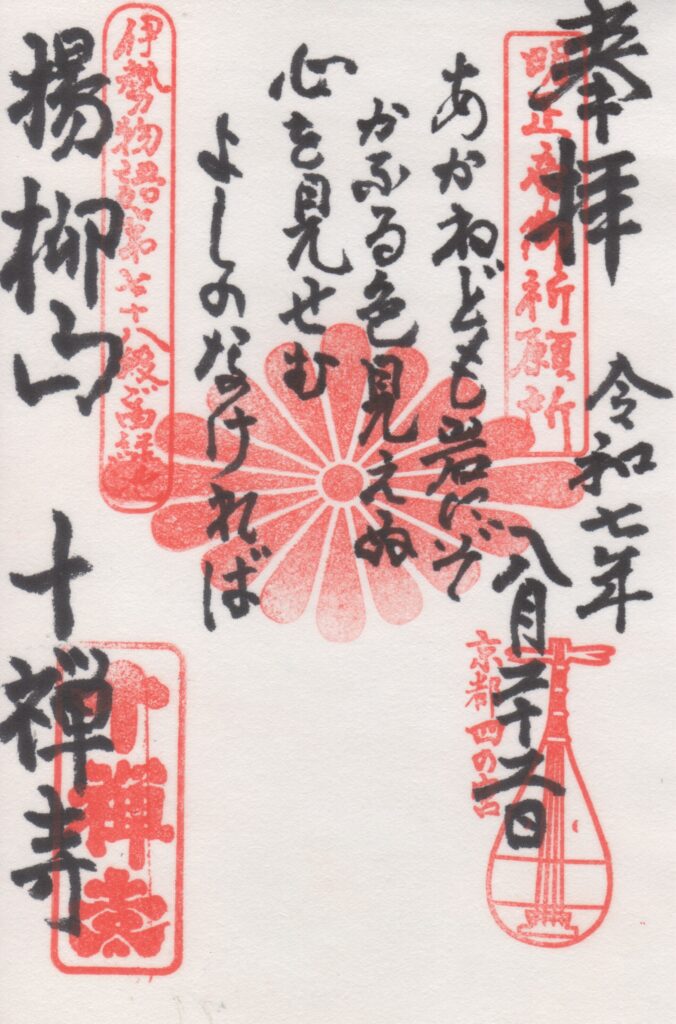 奉拝
明正庵御祈願所
令和七年
八月二十六日
京都四の宮
あかねども岩にぞ
かふる色見えぬ
心を見せむ
よしのなければ
伊勢物語第七十八段
揚柳山
十禅寺
十禅寺